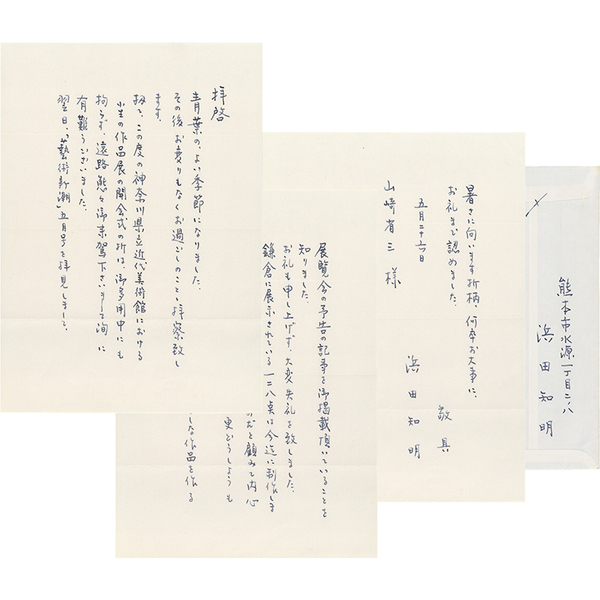 拝啓
青葉の、よい季節になりました。
その後お変りもなくお過しのことゝ拝察致し
ます。
扨て、この度の神奈川県立近代美術館における
小生の作品展の開会式の折は、御多用中にも
拘らず、遠路態々御来駕下さいまして洵に
有難うございました。
翌日、「藝術新潮」五月号を拝見しまして、
展覧会の予告の記事を御掲載頂いていることを
知りました。
お礼も申し上げず、大変失礼を致しました。
鎌倉に展示されている一二八点は今迄に制作しま
のおと顧みて内心
更どうしようも
しな作品を作る
暑さに向います折柄、何卒お大事に。
お礼まで認めました。
敬具
五月二十六日
浜田知明
山崎省三様
熊本市水源一丁目二ノ八
浜田知明